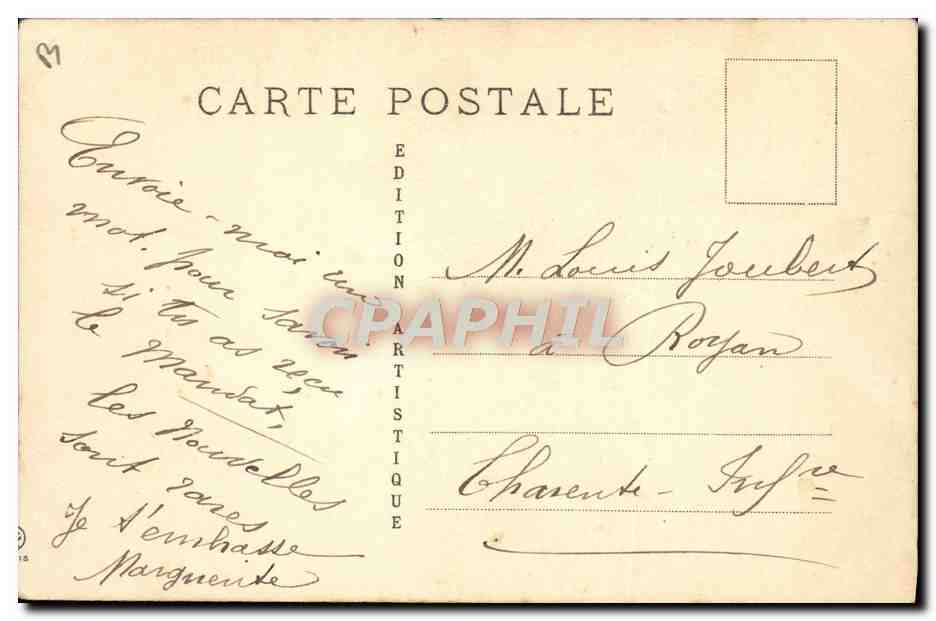 CARTE POSTALE
EDITION ARTISTIQUE
Envoie-moi un
mot. pour savoir
si tu as reçu
le Mandat,
les Nouvelles
sont rares
Je t'embrasse
Marguerite
M. Louis Joubert
à Royan
Charente-Infre
CPAPHIL